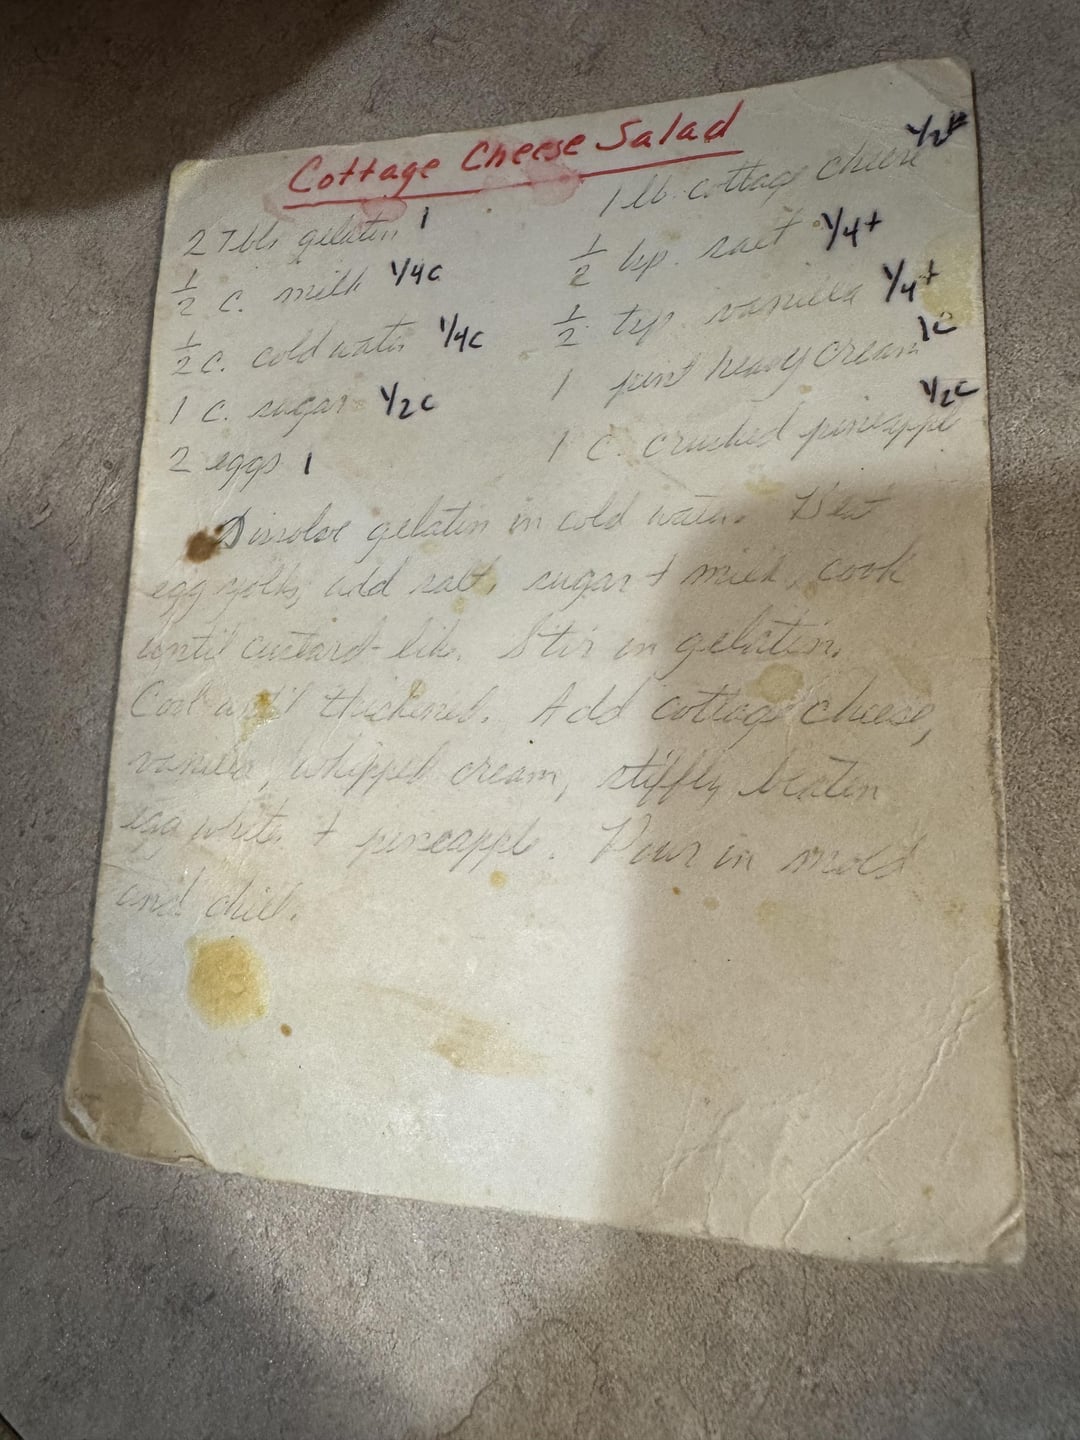 Cottage Cheese Salad
2 Tbls gelatin 1
1/2 c. milk 1/4c
1/2 c. cold water 1/4c
1 c. sugar 1/2c
2 eggs 1
1 lb. cottage cheese 1/2#
1/2 tsp. salt 1/4t
1/2 tsp vanilla 1/4t
1 pint heavy cream 1c
1 c. crushed pineapple 1/2c
Dissolve gelatin in cold water. Beat
egg yolks, add salt, sugar + milk, cook
until custard-like. Stir in gelatin.
Cool until thickened. Add cottage cheese,
vanilla, whipped cream, stiffly beaten
egg whites + pineapple. Pour in mold
and chill.